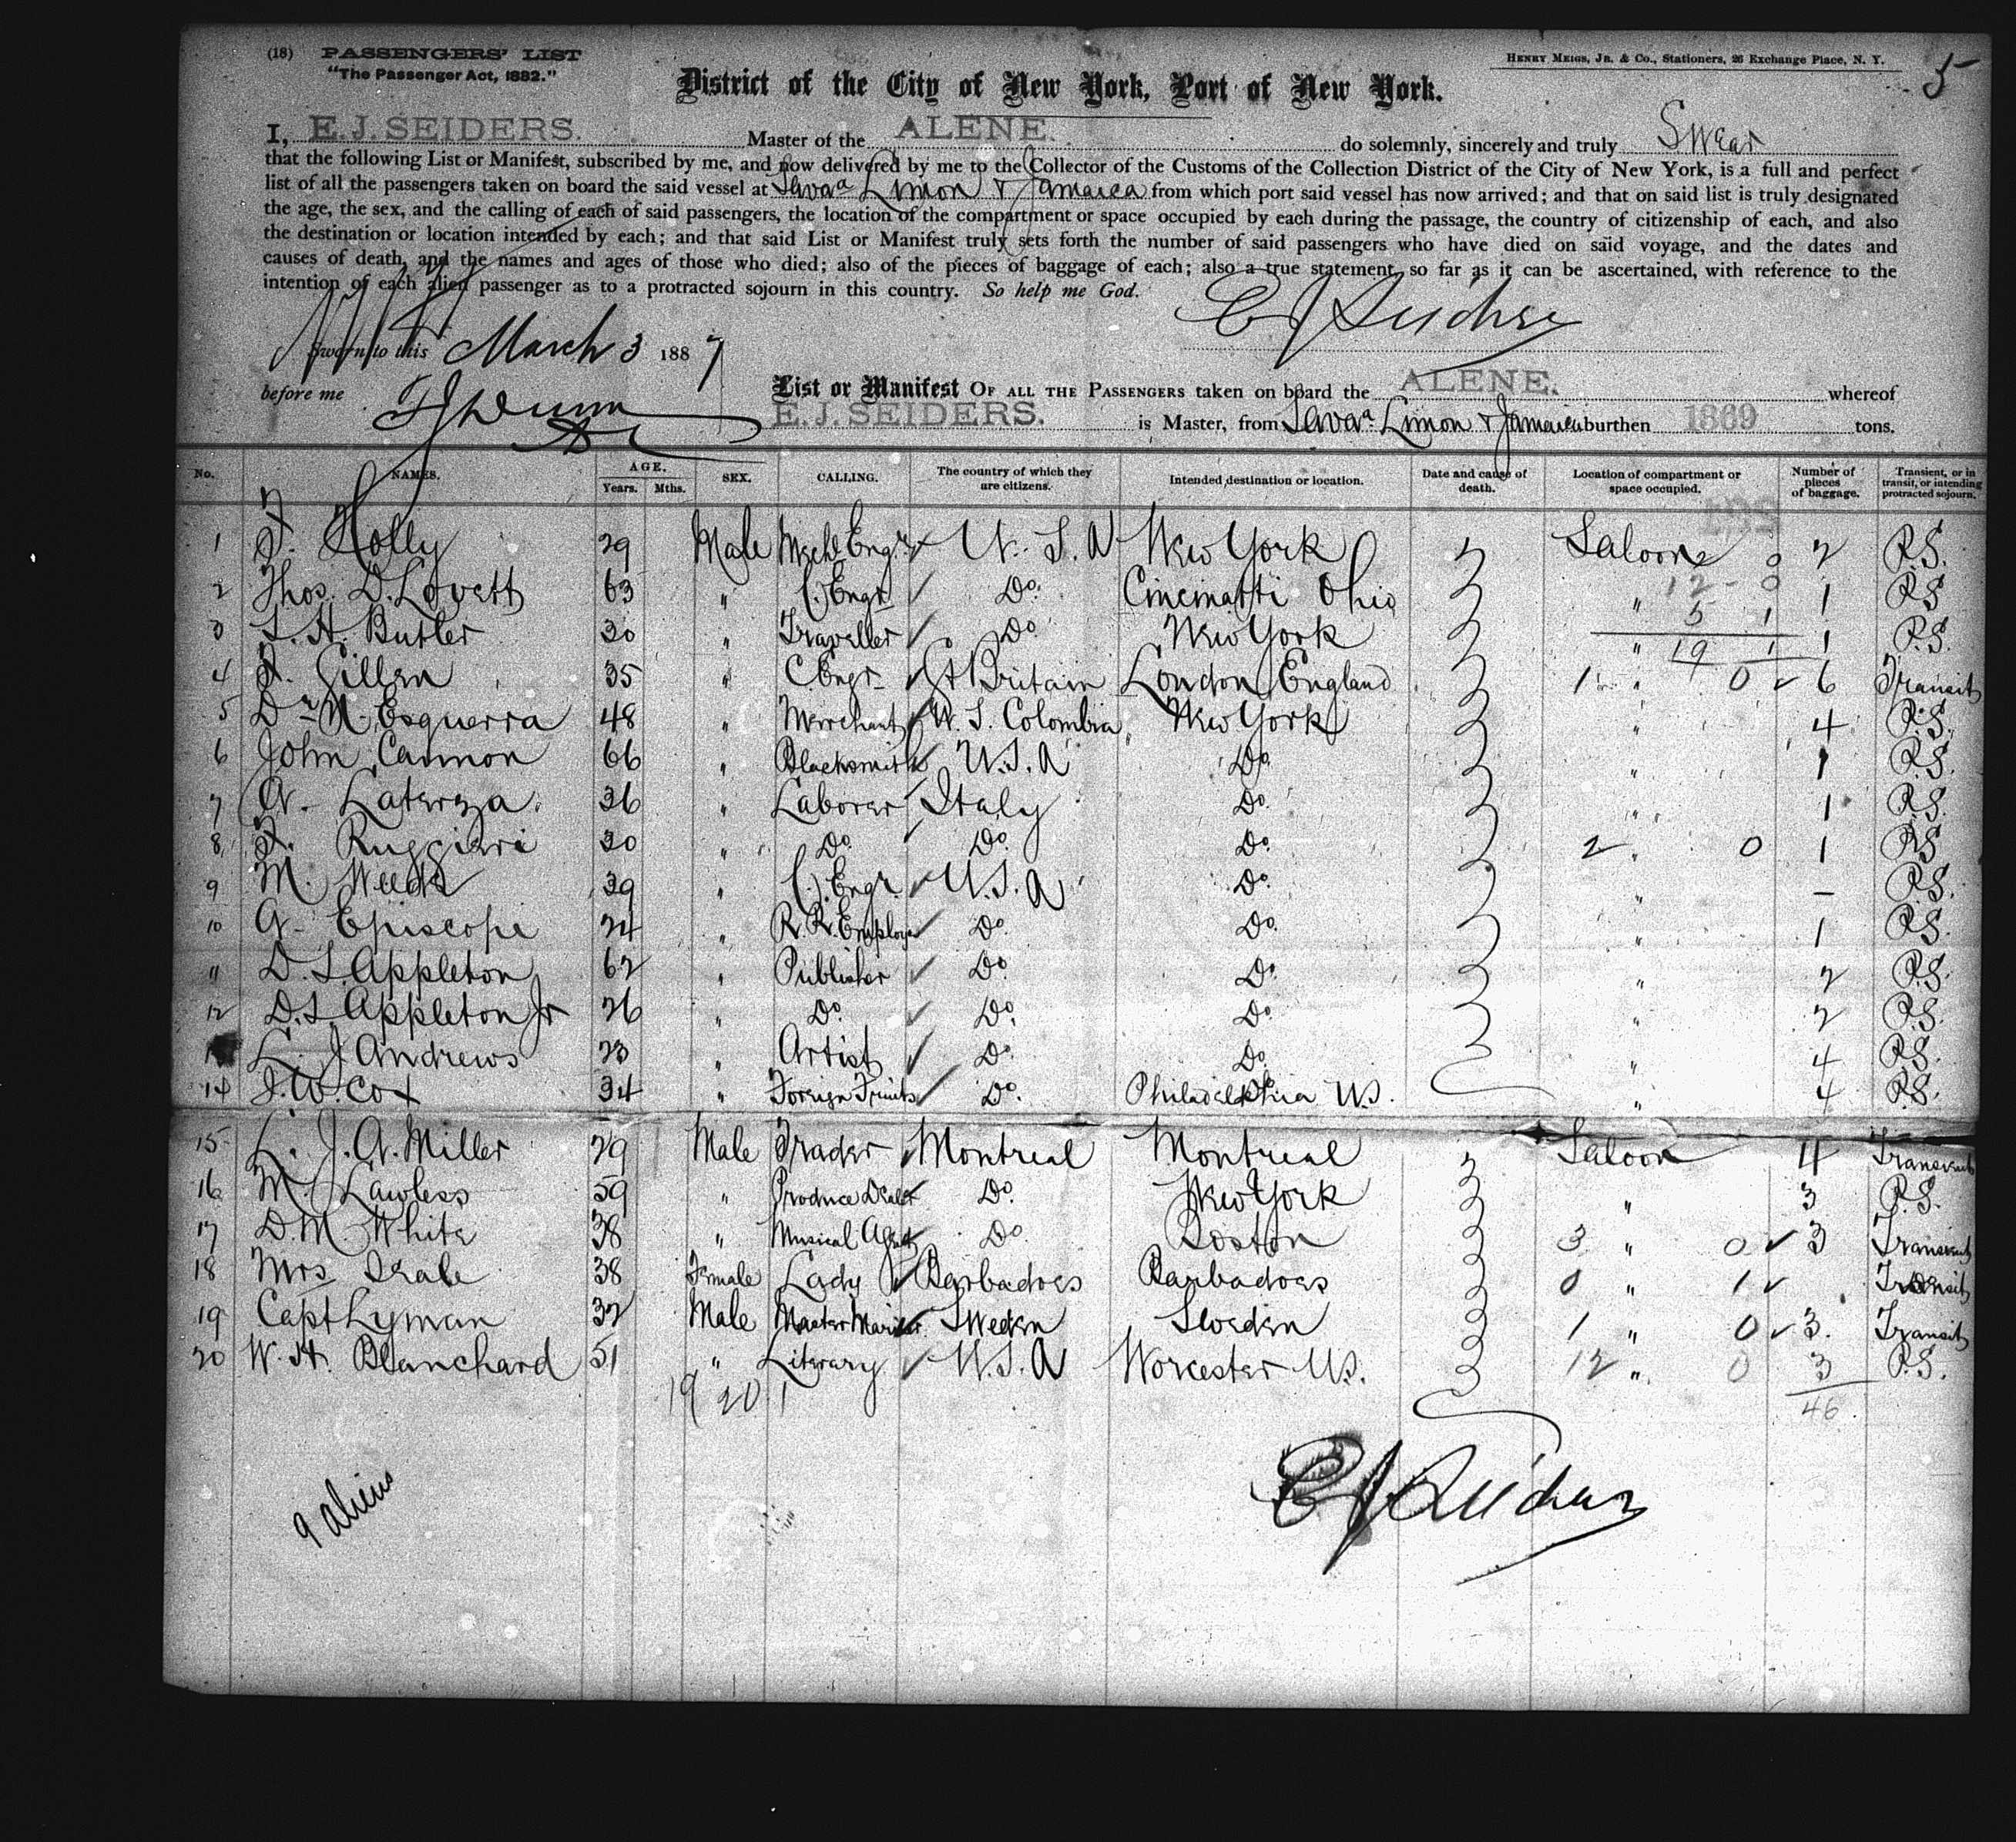 (18) PASSENGERS' LIST
"The Passenger Act, 1882."
HENRY MEIGS, JR. & Co., Stationers, 26 Exchange Place, N. Y.
5
District of the City of New York, Port of New York.
I, E. J. SEIDERS. Master of the ALENE. do solemnly, sincerely and truly Swear
that the following List or Manifest, subscribed by me, and now delivered by me to the Collector of the Customs of the Collection District of the City of New York, is a full and perfect
list of all the passengers taken on board the said vessel at Limon & Jamaica from which port said vessel has now arrived; and that on said list is truly designated
the age, the sex, and the calling of each of said passengers, the location of the compartment or space occupied by each during the passage, the country of citizenship of each, and also
the destination or location intended by each; and that said List or Manifest truly sets forth the number of said passengers who have died on said voyage, and the dates and
causes of death, and the names and ages of those who died; also of the pieces of baggage of each; also a true statement, so far as it can be ascertained, with reference to the
intention of each alien passenger as to a protracted sojourn in this country. So help me God.
E J Seiders
Sworn to this March 3 1887
before me
List or Manifest OF ALL THE PASSENGERS taken on board the ALENE. whereof
E. J. SEIDERS. is Master, from Limon & Jamaica burthen 1869 tons.
No. NAMES. AGE. Years. Mths. SEX. CALLING. The country of which they are citizens. Intended destination or location. Date and cause of death. Location of compartment or space occupied. Number of pieces of baggage. Transient, or in transit, or intending protracted sojourn.
1 F. Holly 29 Male Mechl Engr U. S. A New York Saloon 2 P.S.
2 Thos. D. Lovett 63 " C. Engr Do. Cincinatti Ohio " 12 - 0 1 P.S
3 L. H. Butler 30 " Traveller Do New York " 5 1 1 P.S.
19 1
4 F. Gillen 35 " C. Engr Gt Britain London England 1 " 0 6 Transit
5 Dr N. Esguerra 48 " Merchant U. S. Colombia New York " 4 P.S.
6 John Cannon 66 " Blacksmith U.S.A Do. " 1 P.S.
7 A. Laterza 36 " Laborer Italy Do. " 1 P.S.
8 F. Ruggieri 30 " Do. Do. Do. 2 " 0 1 P.S
9 M. Weeks 39 " C. Engr. U.S.A Do. " - P.S.
10 A. Episcopi 24 " R. R. Employe Do. Do. " 1 P.S.
11 D. S. Appleton 62 " Publisher Do. Do. " 2 P.S.
12 D. S. Appleton Jr 26 " Do. Do. Do. " 2 P.S.
L. J Andrews 23 " Artist Do. Do. " 4 P.S.
14 J. W. Cox 34 " Foreign Fruits Do. Philadelphia U.S. " 4 P.S.
15 L. J. A. Miller 29 Male Trader Montreal Montreal Saloon 4 Transit
16 M. Lawless 59 " Produce Dealer Do. New York " 3 P.S.
17 D. M. White 38 " Musical Agent Do. Boston 3 " 0 3 Transit
18 Mrs 38 Female Lady Barbadoes Barbadoes 0 " 1 Transit
19 Capt Lyman 32 Male Master Mariner Sweden Sweden 1 " 0 3. Transit
20 W. H. Blanchard 51 " Literary U.S.A Worcester U.S. 12 " 0 3 P.S.
19 20 1
46
9 aliens
E J Seiders